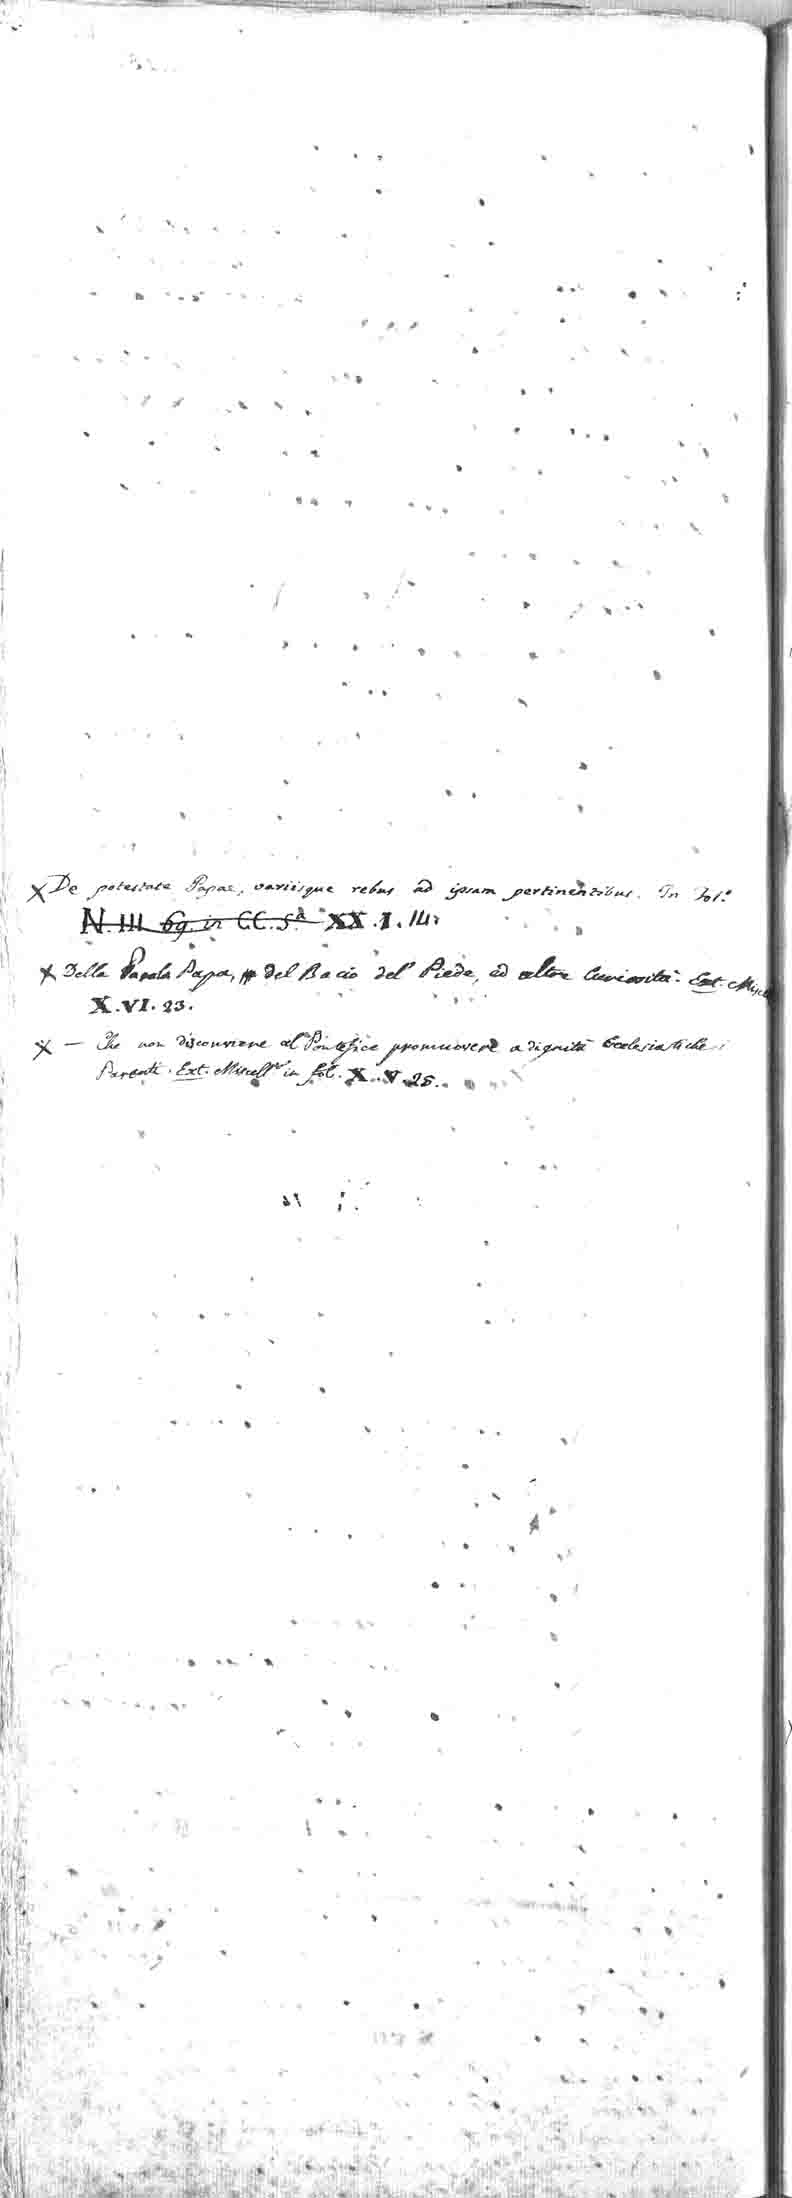 X De potestate Papae, variisque rebus ad ipsam pertinentibus. In Fol.º
N. III. 69. in CC. 5.ª XX. I. 14.
X Della Parola Papa, del Bacio del Piede, ed altre Curiosità. Ext. Miscell
X. VI. 23.
X — Che non disconviene al Pontefice promuovere a dignità Ecclesiastiche i
Parenti. Ext. Miscell. in fol. X. V. 25.